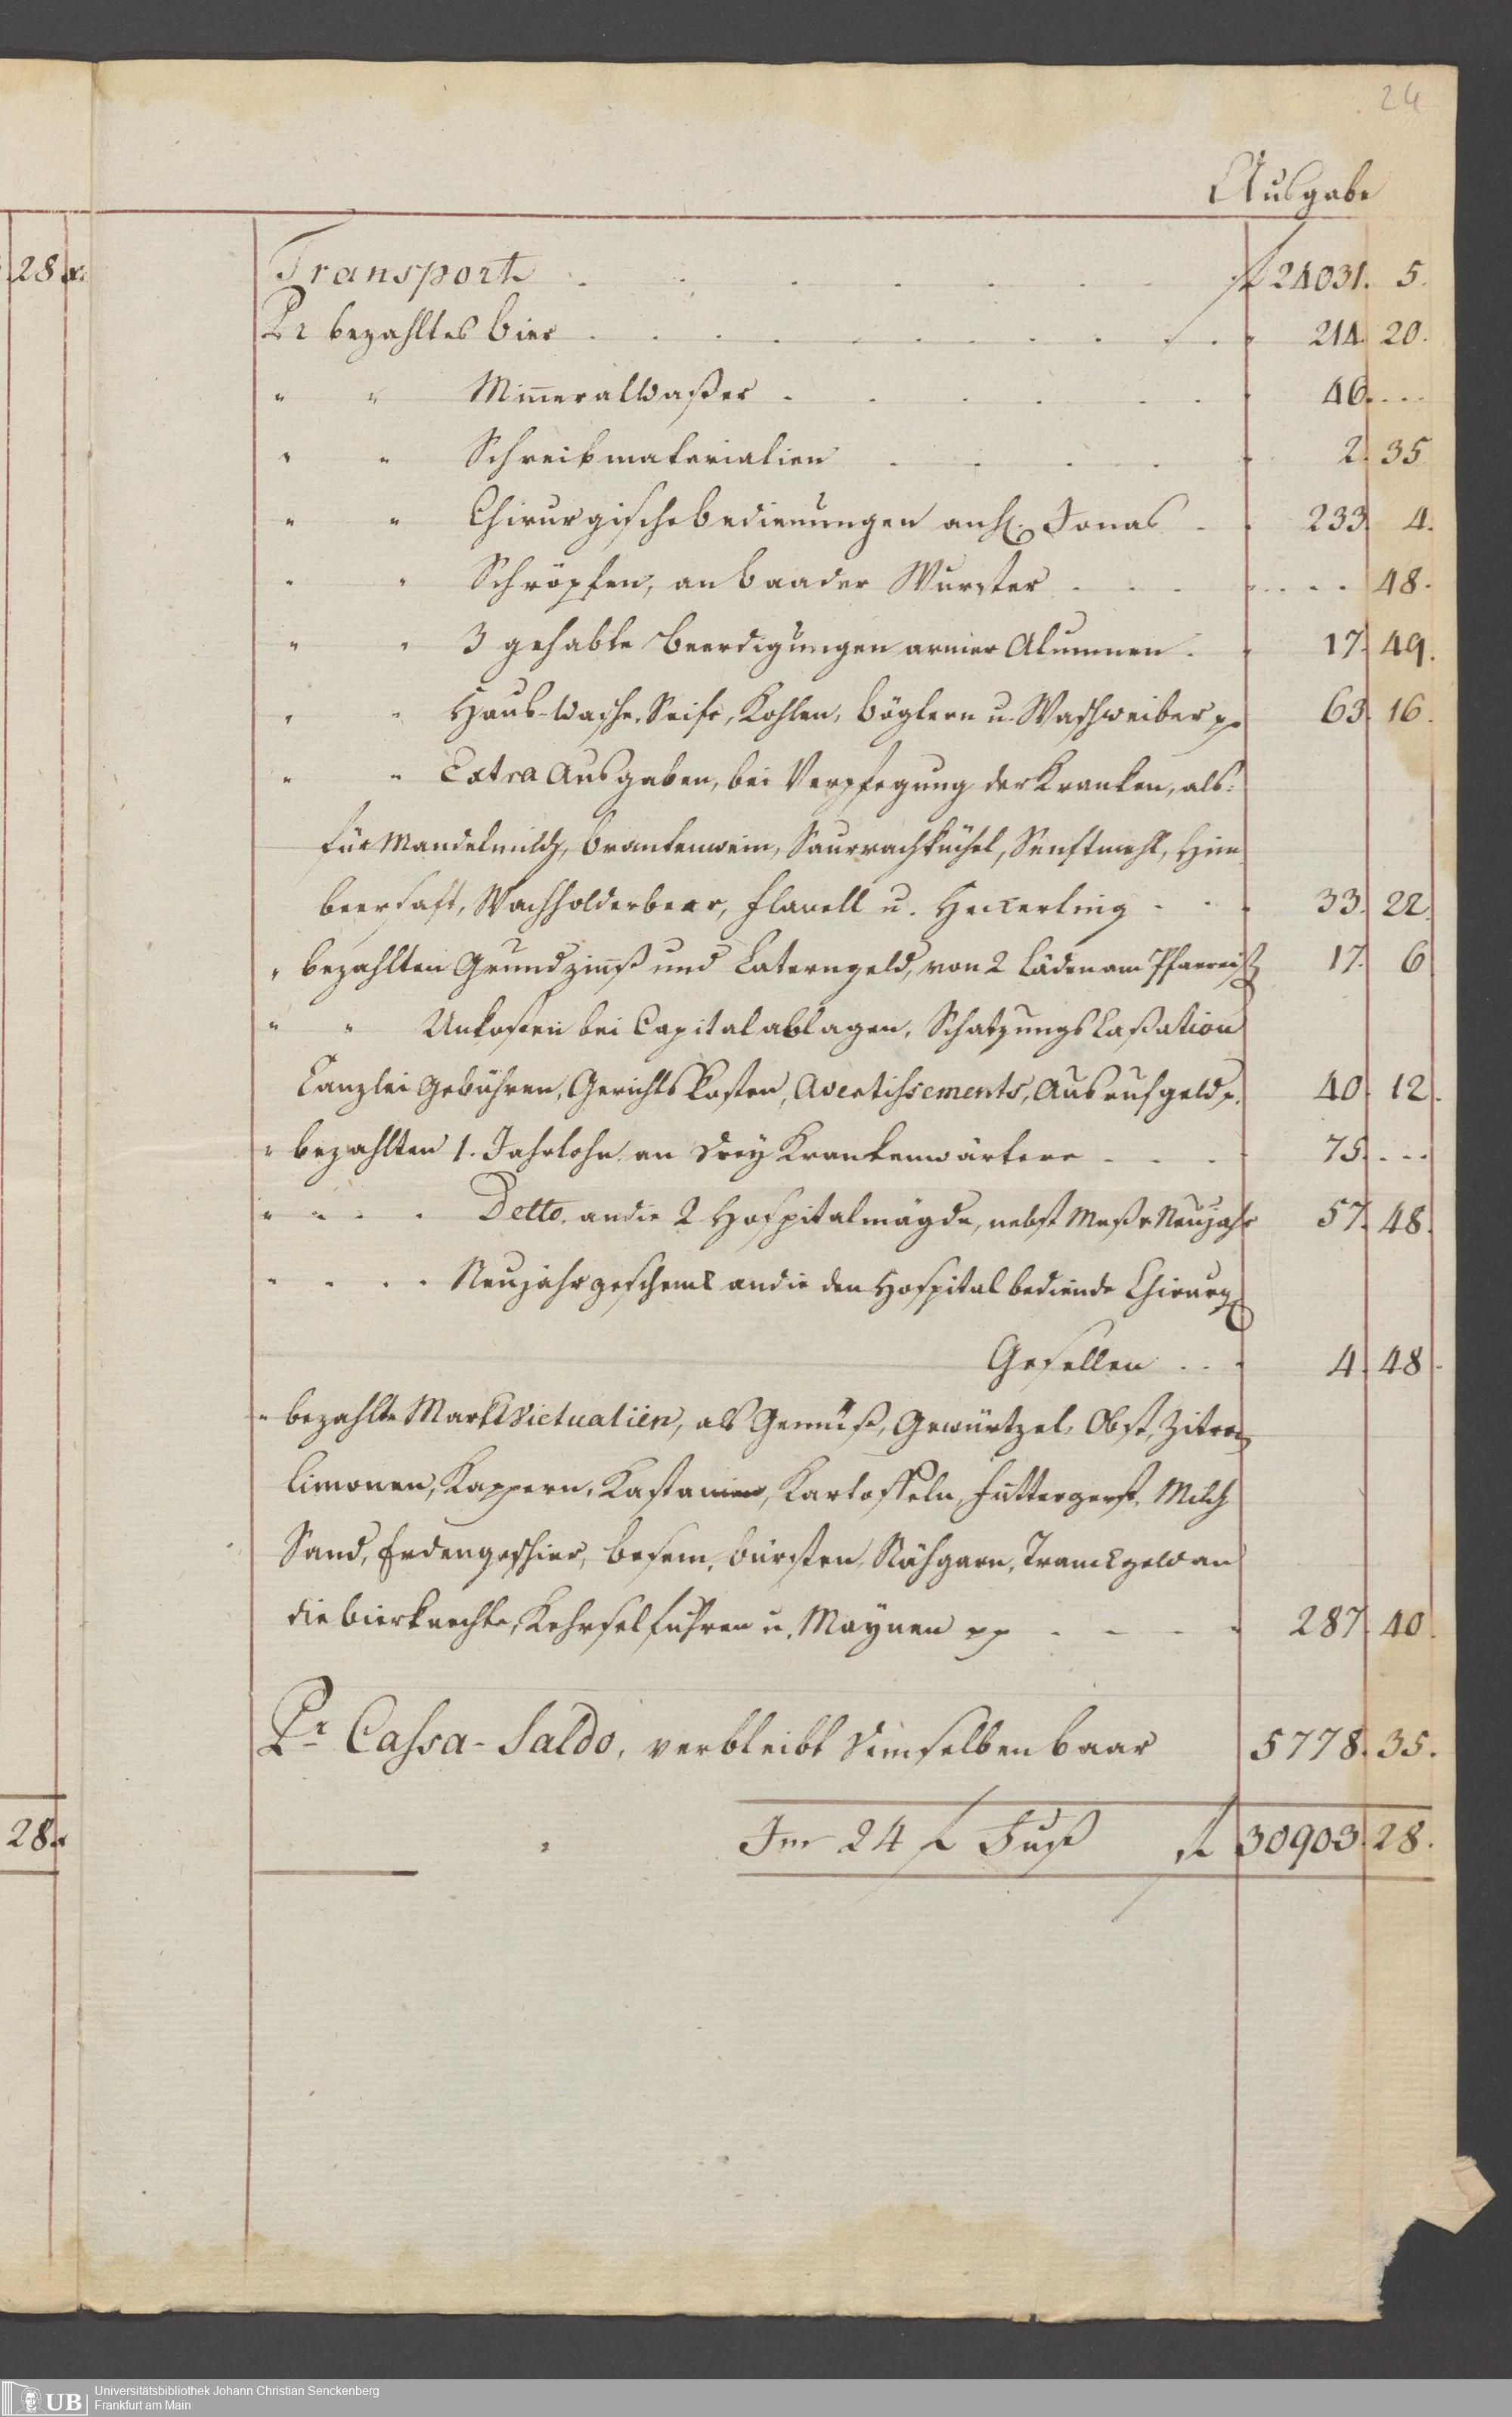 24
Ausgabe
28 x.
Transport . . . . . . . f 24031. 5.
Pr bezahltes Bier . . . . . . . . . 214. 20.
" " MineralWaßer . . . . . . 46. . . .
" " Schreibmaterialien . . . . . 2. 35
" " Chirurgische bedienungen an H. Jonas . . 233. 4.
" " Schröpfen, an baader Wurster . . . . . . . 48.
" " 3 gehabte Beerdigungen armer Alumnen . . 17. 49.
" " Haus-Wasche, Seife, Kohlen, Böglern u. Waschweiber pp 63. 16.
" " Extra Ausgaben, bei Verpflegung der Kranken, als:
für Mandelmilch, brantenwein, Saurrachküchel, Senftmehl, Him
beersaft, Wachholderbeer, Flanell u. Heckerling . . . 33. 22.
" bezahlten Grundzinß und Laterngeld, von 2 Läden am Pfarreisz 17. 6
" " Unkosten bei Capitalablagen, Schatzungs Caßation
Canzlei Gebühren, Gerichts Kosten, Avertissements, Ausrufgeld p. 40. 12.
" bezahlten 1. Jahrlohn an drey Krankenwärtere . . . . 75. . . .
" " . . Detto. an die 2 Hospitalmägde, nebst Meß & Neujahr 57. 48.
" . . . Neujahrgeschenk an die den Hospital bediende Chirurg
Gesellen . . . 4. 48.
" bezahlte MarktVictualien, als Gemüß, Gewürtzel, Obst, Zitron
Limonen, Kappern, Kastanien, Kartoffeln, Futtergerst, Milch
Sand, Erdengeschier, besem, bürsten, Nähgarn, Tranckgeld an
die bierknechte, Kehrselfuhren u. Maynen pp . . . . 287. 40.
Pr Cassa-Saldo, verbleibt dimselben baar 5778. 35.
28 x
Im 24 f Fuß f 30903. 28.
UB Universitätsbibliothek Johann Christian Senckenberg
Frankfurt am Main